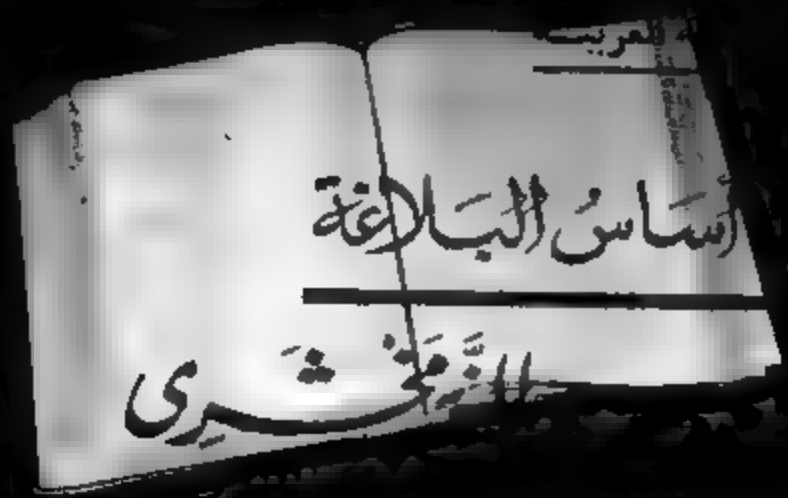 العربية
أَسَاسُ البَلَاغَة
الزَّمَخْشَرِى